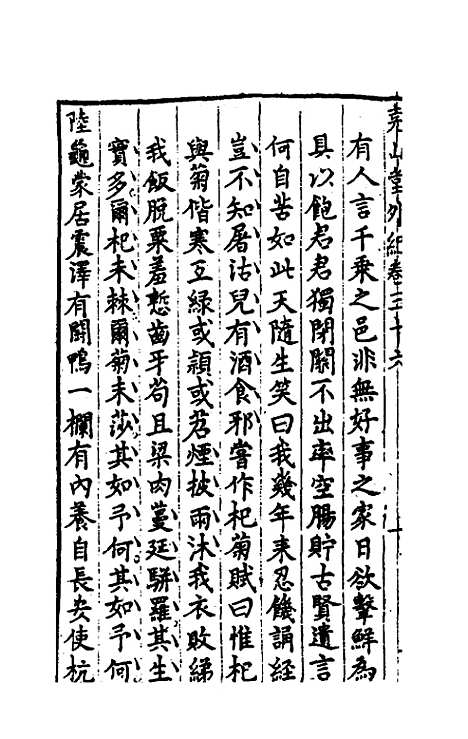 堯山堂外紀卷三十六
有人言千乗之邑非無好事之家日欲擊鮮為
具以飽君君獨閉關不出率空腸貯古賢遺言
何自苦如此天隨生笑曰我幾年来忍饑誦經
豈不知屠沽兒有酒食邪嘗作杞菊賦曰惟杞
與菊偕寒互綠或頴或苕煙披雨沐我衣敗綈
我飯脫粟羞慙齒牙苟且梁肉蔓延駢羅其生
實多爾杞未棘爾菊未莎其如予何其如予何
陸龜蒙居震澤有鬪鴨一欄有內養自長安使杭